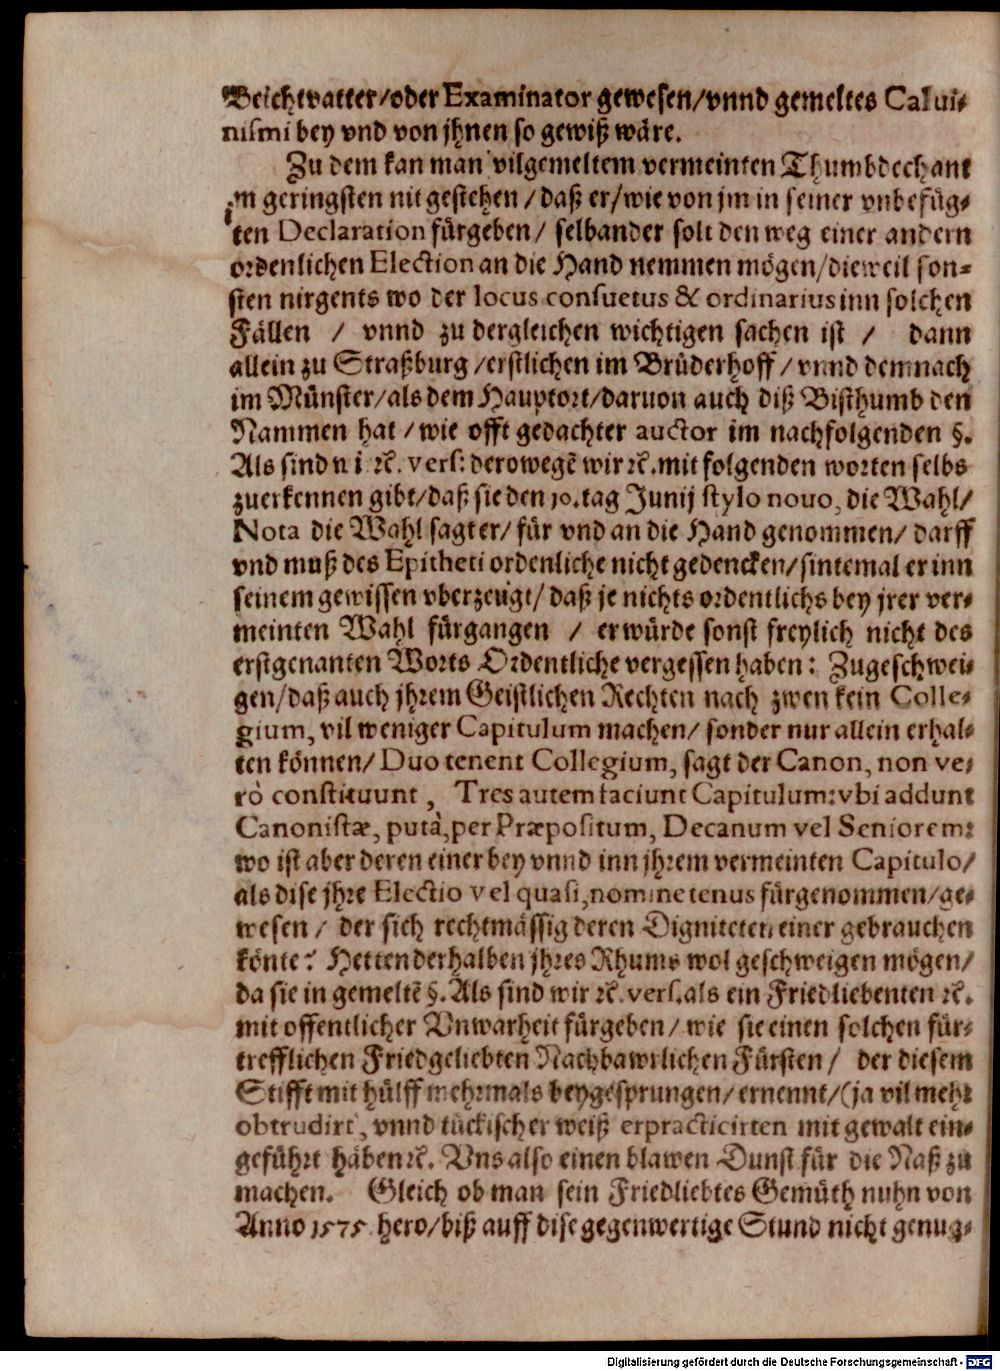 Beichtvatter/oder Examinator gewesen/vnnd gemeltes Caluiniſmi
niſmi bey vnd von jhnen so gewiß wäre.
Zu dem kan man vilgemeltem vermeinten Thumbdechant
im geringsten nit gestehen/daß er/wie von jm in seiner vnbefüg⸗
ten Declaration fürgeben/ selbander solt den weg einer andern
ordenlichen Election an die Hand nemmen mögen/dieweil son⸗
sten nirgents wo der locus conſuetus & ordinarius inn solchen
Fällen / vnnd zu dergleichen wichtigen sachen ist / dann
allein zu Straßburg/erstlichen im Brüderhoff/vnnd demnach
im Münster/als dem Hauptort/daruon auch diß Bisthumb den
Nammen hat/wie offt gedachter auctor im nachfolgenden §.
Als sind wir ꝛc. vers: derowegē wir ꝛc. mit folgenden worten selbs
zuerkennen gibt/daß sie den 10. tag Junij stylo nouo, die Wahl/
Nota die Wahl sagt er/ für vnd an die Hand genommen/ darff
vnd muß des Epitheti ordenliche nicht gedencken/sintemal er inn
seinem gewissen vberzeügt/daß je nichts ordentlichs bey jrer ver⸗
meinten Wahl fürgangen / er würde sonst freylich nicht des
erstgenanten Worts Ordentliche vergessen haben: Zugeschwei⸗
gen/daß auch jhrem Geistlichen Rechten nach zwen kein Colle⸗
gium, vil weniger Capitulum machen/ sonder nur allein erhal⸗
ten können/ Duo tenent Collegium, sagt der Canon, non ve⸗
rò constituunt, Tres autem faciunt Capitulum: vbi addunt
Canonistæ, putà, per Præpositum, Decanum vel Seniorem:
wo ist aber deren einer bey vnnd inn jhrem vermeinten Capitulo/
als dise jhre Electio vel quasi, nomine tenus fürgenommen/ge⸗
wesen/ der sich rechtmässig deren Digniteten einer gebrauchen
könte? Hetten derhalben jhres Rhums wol geschweigen mögen/
da sie in gemeltē §. Als sind wir ꝛc. vers. als ein Friedliebenten ꝛc.
mit offentlicher Vnwarheit fürgeben/ wie sie einen solchen für⸗
trefflichen Friedgeliebten Nachbawrlichen Fürsten/ der diesem
Stifft mit hülff mehrmals beygesprungen/ernennt/(ja vil mehr
obtrudirt, vnnd tückischer weiß erpracticirten mit gewalt ein⸗
geführt haben ꝛc. Vns also einen blawen Dunst für die Naß zu
machen. Gleich ob man sein Friedliebtes Gemüth nuhn von
Anno 1575. hero/biß auff dise gegenwertige Stund nicht genug⸗
Digitalisierung gefördert durch die Deutsche Forschungsgemeinschaft - DFG